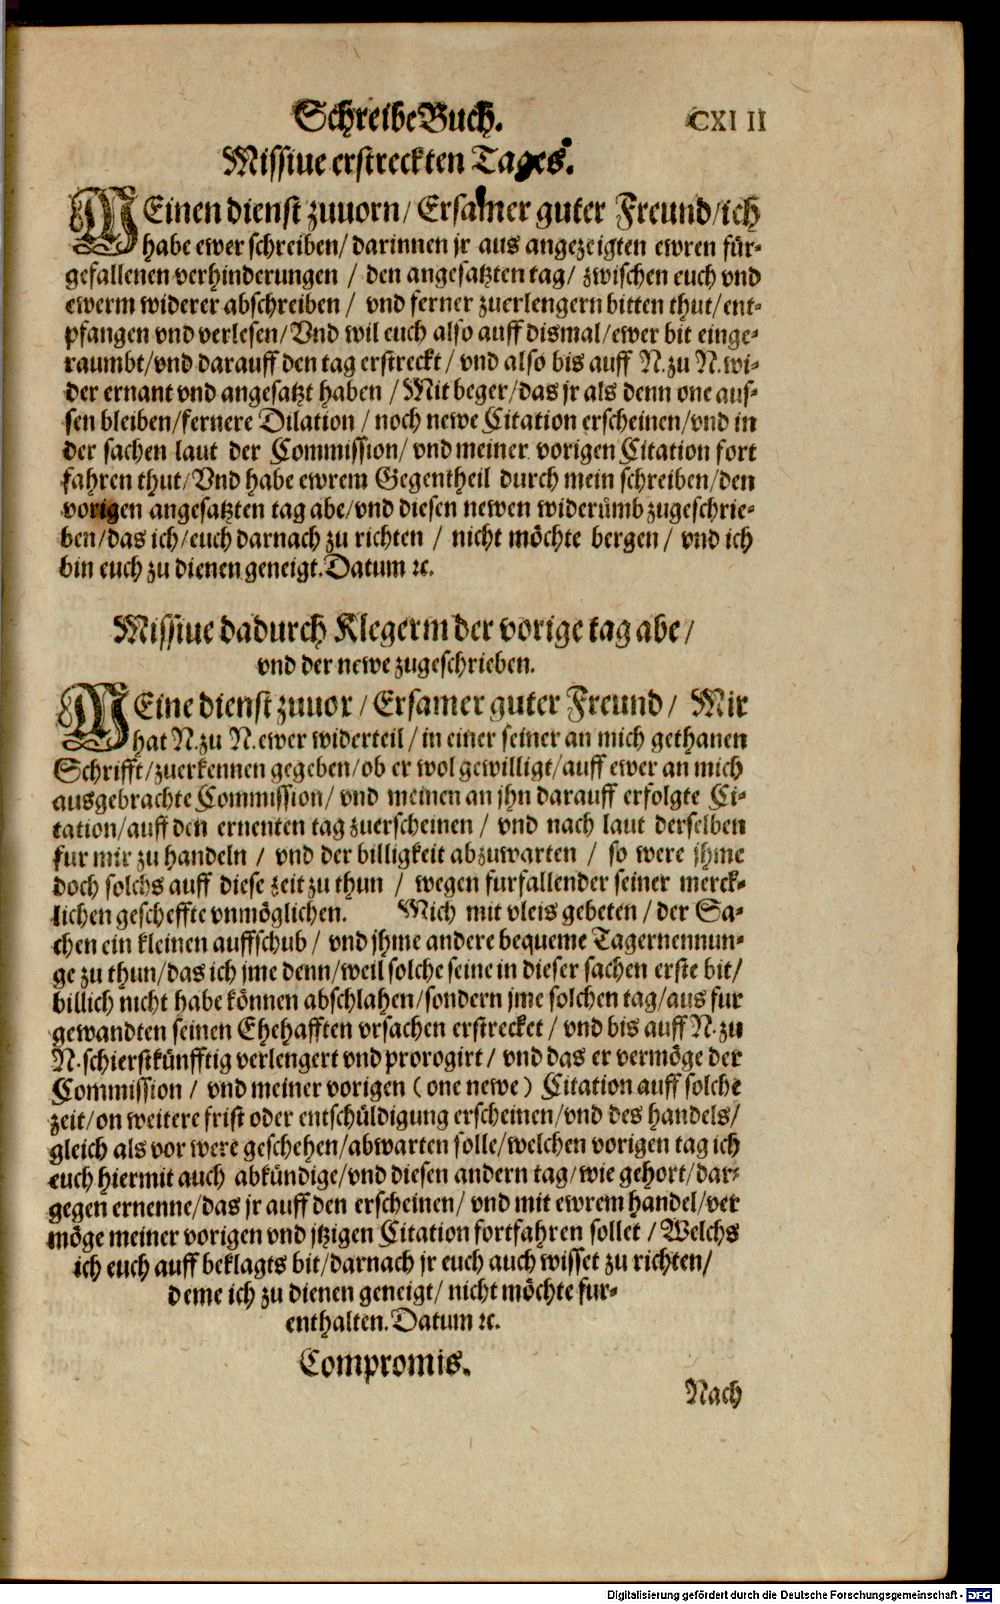 Schreibe Buch. CXI II
Missiue erstreckten Tages.
MEinen dienst zuuorn/ Ersamer guter Freund/ ich
habe ewer schreiben/ darinnen jr aus angezeigten ewren für-
gefallenen verhinderungen / den angesatzten tag/ zwischen euch vnd
ewerm widerer abschreiben / vnd ferner zuerlengern bitten thut/ ent-
pfangen vnd verlesen/ Vnd wil euch also auff dismal/ ewer bit einge-
raumbt/ vnd darauff den tag erstreckt / vnd also bis auff N. zu N. wi-
der ernant vnd angesatzt haben / Mit beger/ das jr als denn one aus-
sen bleiben/ fernere Dilation / noch newe Citation erscheinen/ vnd in
der sachen laut der Commission/ vnd meiner vorigen Citation fort
fahren thut/ Vnd habe ewrem Gegentheil durch mein schreiben/ den
vorigen angesatzten tag abe/ vnd diesen newen widerümb zugeschrie-
ben/ das ich/ euch darnach zu richten / nicht möchte bergen/ vnd ich
bin euch zu dienen geneigt. Datum ꝛc.
Missiue dadurch Klegerm der vorige tag abe/
vnd der newe zugeschrieben.
MEine dienst zuuor / Ersamer guter Freund / Mir
hat N. zu N. ewer widerteil / in einer seiner an mich gethanen
Schrifft/ zuerkennen gegeben/ ob er wol gewilligt/ auff ewer an mich
ausgebrachte Commission/ vnd meinen an jhn darauff erfolgte Ci-
tation/ auff den ernenten tag zuerscheinen / vnd nach laut derselben
fur mir zu handeln / vnd der billigkeit abzuwarten / so were jhme
doch solchs auff diese zeit zu thun / wegen furfallender seiner merck-
lichen gescheffte vnmöglichen. Mich mit vleis gebeten / der Sa-
chen ein kleinen auffschub / vnd jhme andere bequeme Tagernennun-
ge zu thun/ das ich jme denn/ weil solche seine in dieser sachen erste bit/
billich nicht habe können abschlahen/ sondern jme solchen tag/ aus fur
gewandten seinen Ehehafften vrsachen erstrecket / vnd bis auff N. zu
N. schierstkünfftig verlengert vnd prorogirt / vnd das er vermöge der
Commission / vnd meiner vorigen ( one newe ) Citation auff solche
zeit/ on weitere frist oder entschüldigung erscheinen/ vnd des handels/
gleich als vor were geschehen/ abwarten solle/ welchen vorigen tag ich
euch hiermit auch abkündige/ vnd diesen andern tag/ wie gehort/ dar-
gegen ernenne/ das jr auff den erscheinen / vnd mit ewrem handel/ ver
möge meiner vorigen vnd jtzigen Citation fortfahren sollet / Welchs
ich euch auff beklagts bit/ darnach jr euch auch wisset zu richten/
deme ich zu dienen geneigt/ nicht möchte fur-
enthalten. Datum ꝛc.
Compromis.
Nach
Digitalisierung gefördert durch die Deutsche Forschungsgemeinschaft - DFG